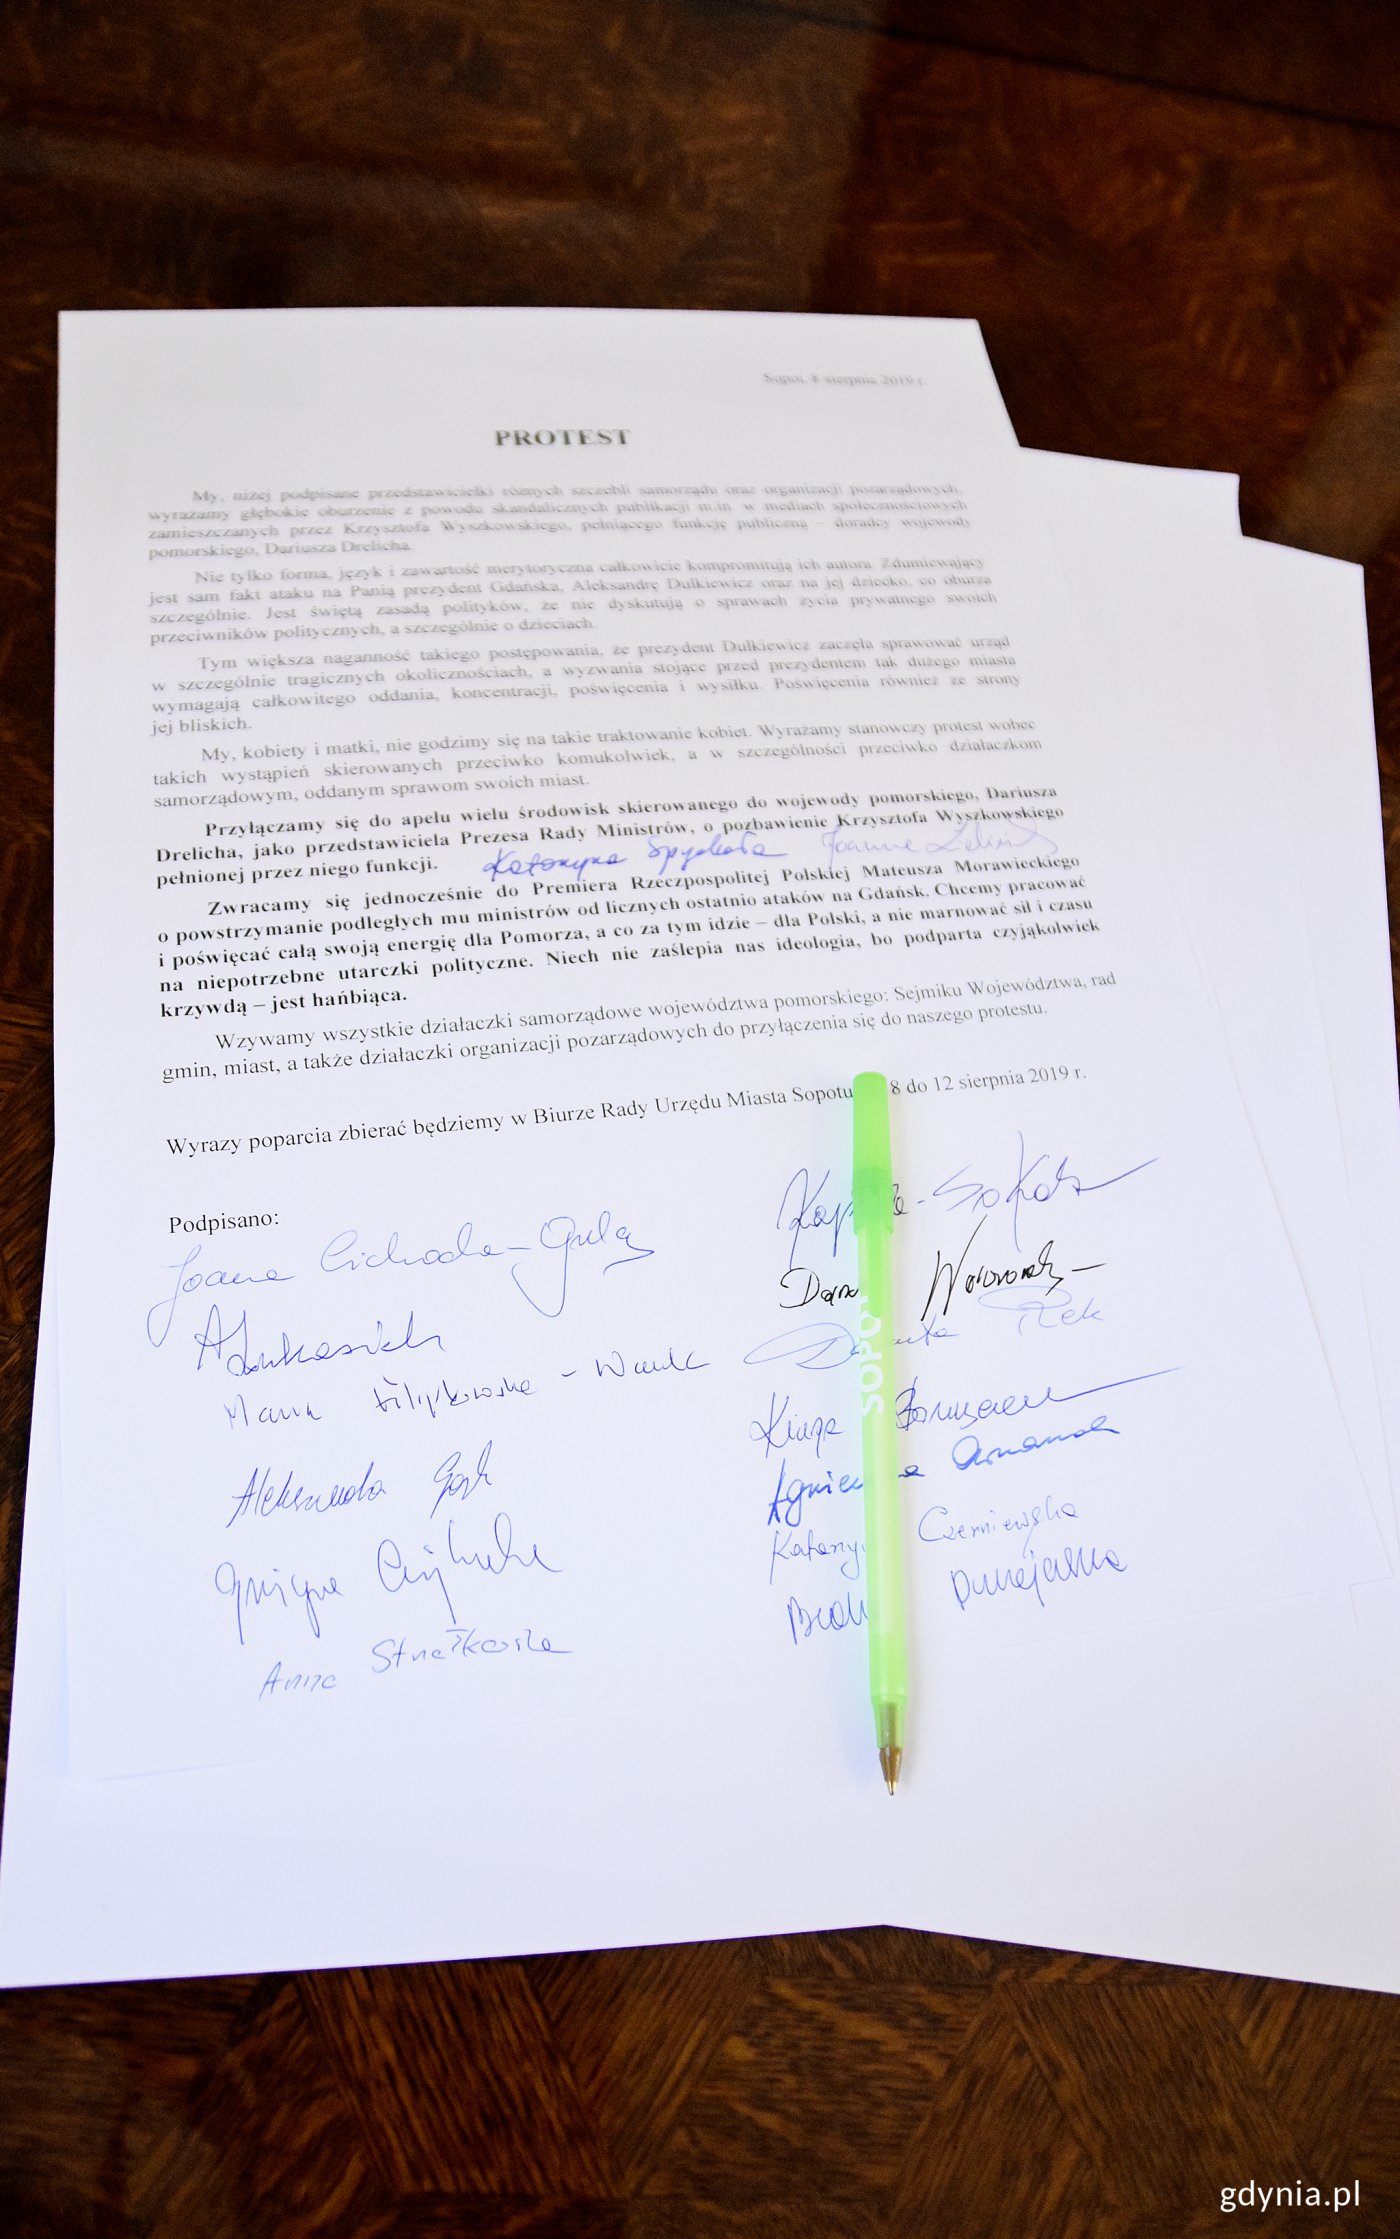 Sopot, 8 sierpnia 2019 r.
PROTEST
My, niżej podpisane przedstawicielki różnych szczebli samorządu oraz organizacji pozarządowych,
wyrażamy głębokie oburzenie z powodu skandalicznych publikacji m.in. w mediach społecznościowych
zamieszczanych przez Krzysztofa Wyszkowskiego, pełniącego funkcję publiczną – doradcy wojewody
pomorskiego, Dariusza Drelicha.
Nie tylko forma, język i zawartość merytoryczna całkowicie kompromitują ich autora. Zdumiewający
jest sam fakt ataku na Panią prezydent Gdańska, Aleksandrę Dulkiewicz oraz na jej dziecko, co oburza
szczególnie. Jest świętą zasadą polityków, że nie dyskutują o sprawach życia prywatnego swoich
przeciwników politycznych, a szczególnie o dzieciach.
Tym większa naganność takiego postępowania, że prezydent Dulkiewicz zaczęła sprawować urząd
w szczególnie tragicznych okolicznościach, a wyzwania stojące przed prezydentem tak dużego miasta
wymagają całkowitego oddania, koncentracji, poświęcenia i wysiłku. Poświęcenia również ze strony
jej bliskich.
My, kobiety i matki, nie godzimy się na takie traktowanie kobiet. Wyrażamy stanowczy protest wobec
takich wystąpień skierowanych przeciwko komukolwiek, a w szczególności przeciwko działaczkom
samorządowym, oddanym sprawom swoich miast.
Przyłączamy się do apelu wielu środowisk skierowanego do wojewody pomorskiego, Dariusza
Drelicha, jako przedstawiciela Prezesa Rady Ministrów, o pozbawienie Krzysztofa Wyszkowskiego
pełnionej przez niego funkcji. Katarzyna Spychała Joanna
Zwracamy się jednocześnie do Premiera Rzeczpospolitej Polskiej Mateusza Morawieckiego
o powstrzymanie podległych mu ministrów od licznych ostatnio ataków na Gdańsk. Chcemy pracować
i poświęcać całą swoją energię dla Pomorza, a co za tym idzie – dla Polski, a nie marnować sił i czasu
na niepotrzebne utarczki polityczne. Niech nie zaślepia nas ideologia, bo podparta czyjąkolwiek
krzywdą – jest hańbiąca.
Wzywamy wszystkie działaczki samorządowe województwa pomorskiego: Sejmiku Województwa, rad
gmin, miast, a także działaczki organizacji pozarządowych do przyłączenia się do naszego protestu.
Wyrazy poparcia zbierać będziemy w Biurze Rady Urzędu Miasta Sopotu 8 do 12 sierpnia 2019 r.
Podpisano:
Joanna Cichocka-Gula
Maria Filipkowska-
Danuta
Kinga
Aleksandra
Agnieszka
Katarzyna Czerniewska
Dunajewska
Anna
SOPOT
gdynia.pl